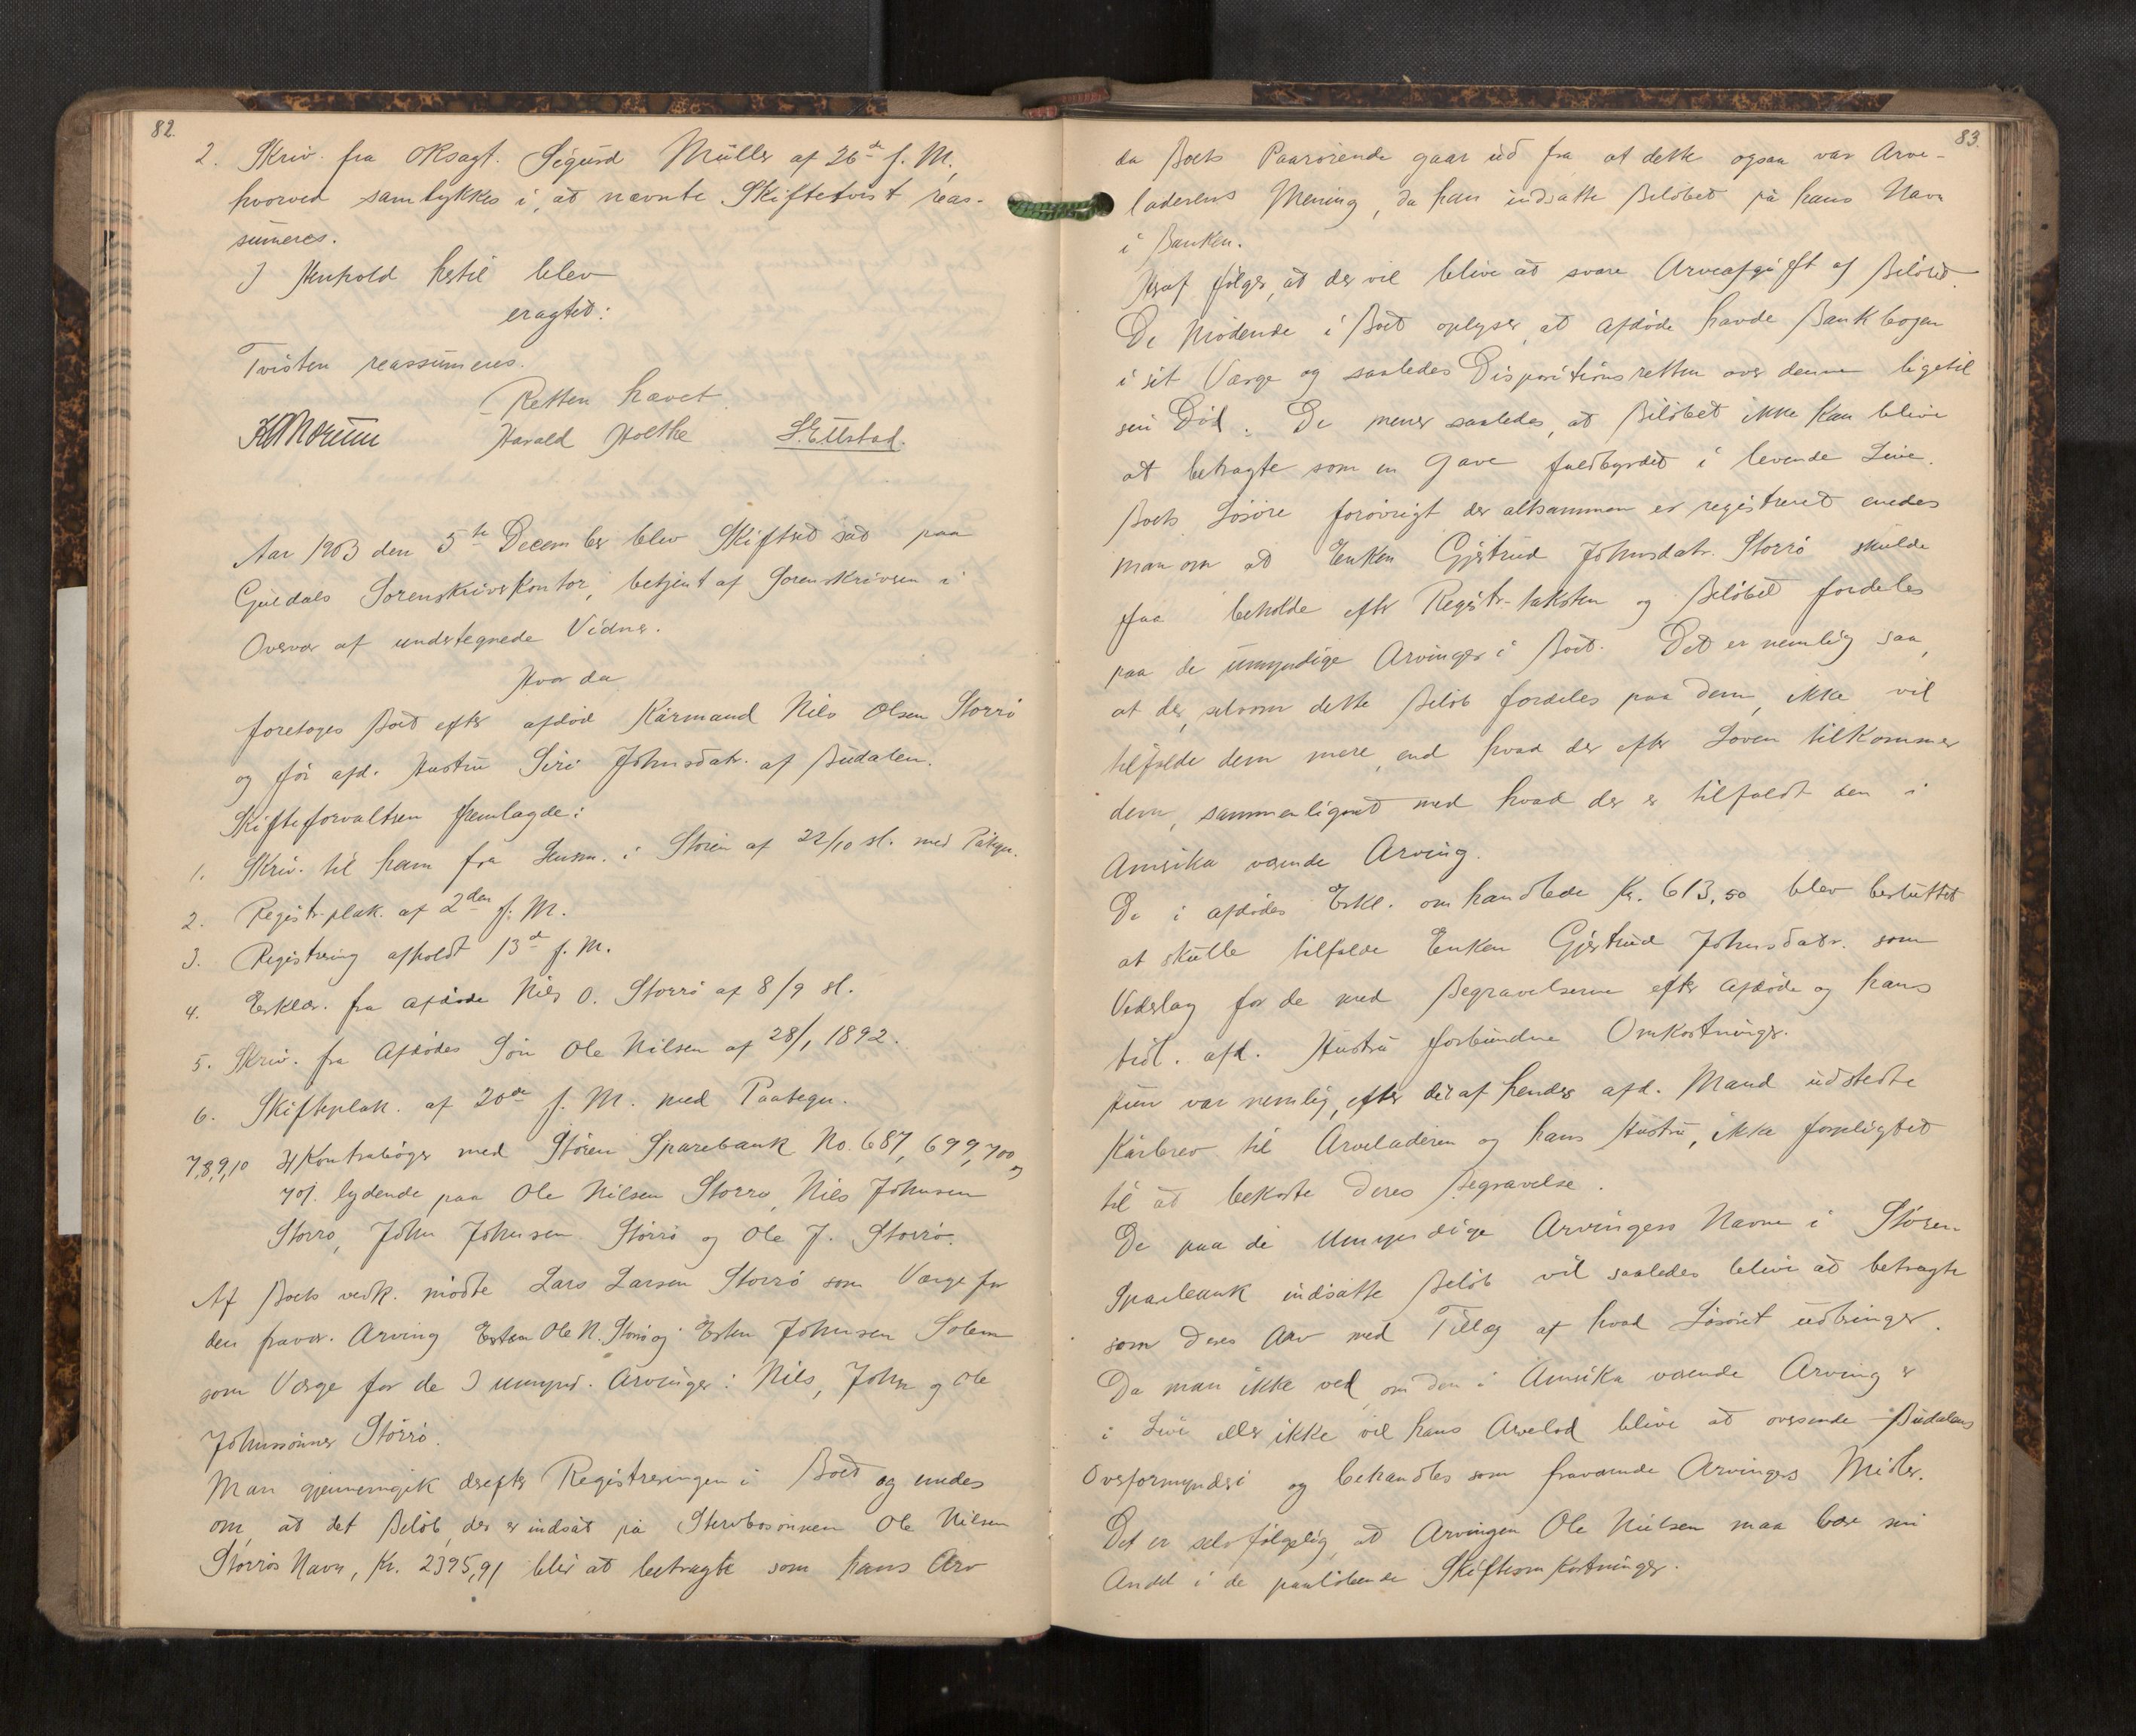 82.
2. Skriv. fra Oksagf. Sigurd Müller af 26de f. M.,
hvorved samtykkes i, at nævnte Skiftetvist reas-
sumeres.
I Henhold hertil blev
eragtet:
Tvisten reassumeres.
Retten hævet
Harald Holthe L. Ellstad.
Aar 1903 den 5te December blev Skifteret sat paa
Guldals Sorenskriverkontor, betjent af Sorenskriveren i
Overvær af undertegnede Vidner.
Hvor da
foretoges Boet efter afdød Kårmand Nils Olsen Storrø
og før afd. Hustru Siri Johnsdatr. af Budalen.
Skifteforvalteren fremlagde:
1. Skriv. til ham fra Lensm. i Støren af 22/10 sl. med Påtegn.
2. Registr.plak. af 2den f. M.
3. Registrering afholdt 13de f. M.
4. Erklær. fra afdøde Nils O. Storrø af 8/9 sl.
5. Skriv. fra Afdødes Søn Ole Nilsen af 28/1 1892.
6. Skifteplak. af 20de f. M. med Paategn.
7,8,9,10 4 Kontrabøger med Støren Sparebank No. 687, 699, 700 og
701. lydende paa Ole Nilsen Storrø, Nils Johnsen
Storrø, John Johnsen Storrø og Ole J. Storrø.
Af Boets vedk. mødte Lars Larsen Storrø som Værge for
den fravær. Arving Ole N. Storrø og Esten Johnsen Solem
som Værge for de 3 umynd. Arvinger: Nils, John og Ole
Johnssønner Storrø.
Man gjennemgik derefter Registreringen i Boet og enedes
om, at det Beløb, der er indsat på Stervbosønnen Ole Nilsen
Storrøs Navn, Kr. 2395,91 blir at betragte som hans Arv
83.
da Boets Paarørende gaar ud fra at dette ogsaa var Arve-
laderens Mening, da han indsatte Beløbet på hans Navn
i Banken.
Heraf følger, at der vil blive at svare Arveafgift af Beløbet.
De Mødende i Boet oplyser, at afdøde havde Bankbogen
i sit Værge og saaledes Dispositionsretten over denne ligetil
sin Død. De mener saaledes, at Beløbet ikke kan blive
at betragte som en Gave fuldbyrdet i levende Live.
Boets Løsøre forøvrigt der altsammen er registreret enedes
man om at Enken Gjertrud Johnsdatr. Storrø skulde
faa beholde efter Registr.taksten og Beløbet fordeles
paa de umyndige Arvinger i Boet. Det er nemlig saa,
at der, selvom dette Beløb fordeles paa dem, ikke vil
tilfalde dem mere, end hvad der efter Loven tilkommer
dem, sammenlignet med hvad der er tilfaldt den i
Amerika værende Arving.
De i afdødes Erkl. omhandlede Kr. 613,50 blev besluttet
at skulle tilfalde Enken Gjertrud Johnsdatr. som
Vederlag for de med Begravelserne efter Afdøde og hans
tidl. afd. Hustru forbundne Omkostninger.
Hun var nemlig, efter det af hendes afd. Mand udstedte
Kårbrev til Arveladeren og hans Hustru, ikke forpligtet
til at bekoste deres Begravelse.
De paa de umyndige Arvingers Navne i Støren
Sparebank indsatte Beløb vil saaledes blive at betragte
som deres Arv med Tillæg af hvad Løsøret udbringer.
Da man ikke ved, om den i Amerika værende Arving er
i Live eller ikke vil hans Arvelod blive at oversende Budalens
Overformynderi og behandles som fraværende Arvinges Midler.
Det er selvfølgelig, at Arvingen Ole Nielsen maa bære sin
Andel i de paaløbende Skifteomkostninger.